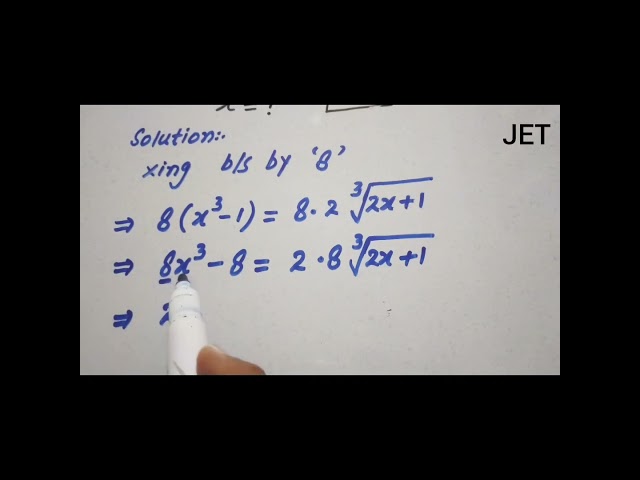 x = ?
JET
Solution:-
xing b/s by '8'
⇒ 8(x³-1) = 8·2 ∛2x+1
⇒ 8x³-8 = 2·8 ∛2x+1
⇒ 2